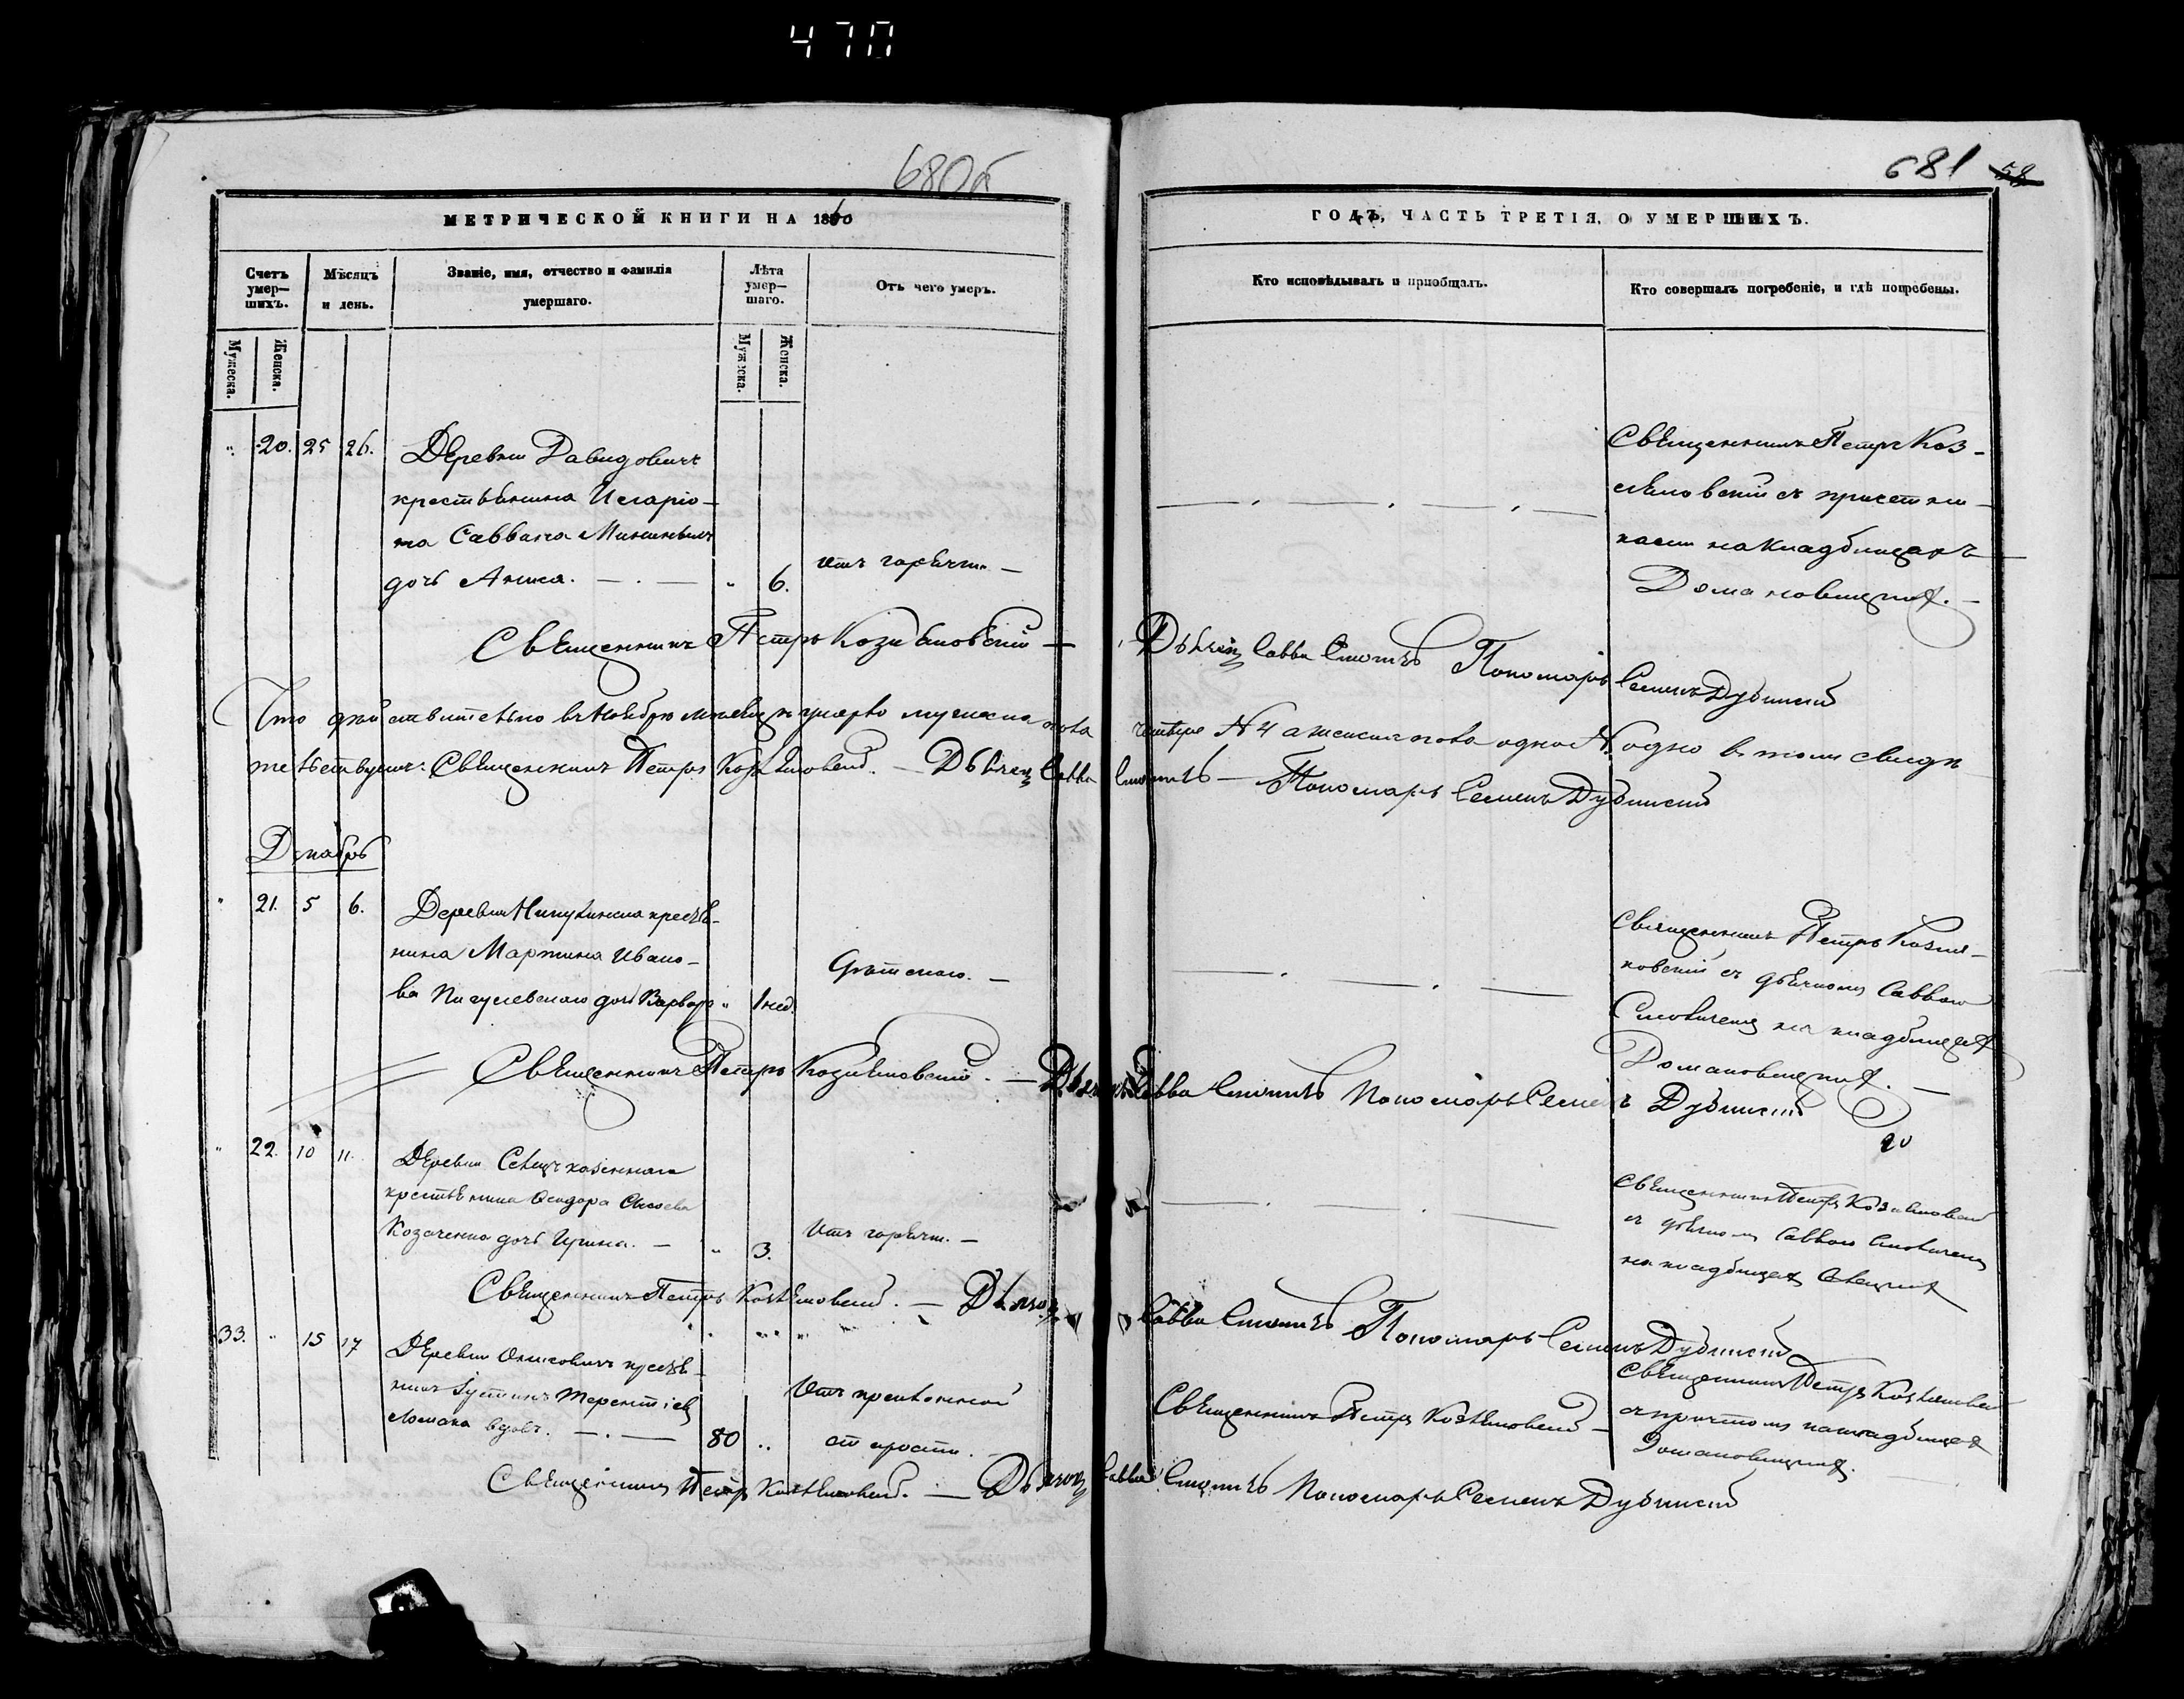 470
680б
681 58
МЕТРИЧЕСКОЙ КНИГИ НА 1860
ГОДЪ, ЧАСТЬ ТРЕТІЯ, О УМЕРШИХЪ.
Счетъ умер-шихъ.
Мѣсяцъ и день.
Званіе, имя, отчество и фамилія умершаго.
Лѣта умер-шаго.
Отъ чего умеръ.
Кто исповѣдывалъ и пріобщалъ.
Кто совершалъ погребеніе, и гдѣ погребены.
Мужеска.
Женска.
Мужеска.
Женска.
" 20. 25 26.
Деревни Давидовичъ
крестьянина Иларіо-
на Саввина
дочь Анна. " 6.
отъ горячк.
Священникъ Петръ Коз-
ляковскій съ причетни-
ками на кладбищахъ
Домановицкихъ.
Священникъ Петръ Козляковскій — Дьячокъ Савва Пономарь Семенъ Дубинскій
Что действительно въ Ноябрѣ месяцѣ умерло мужеска пола четыре № 4 а женска пола одно № одно въ томъ свидѣ
тельствуемъ: Священникъ Петръ Козляковскій. — Дьячокъ Савва — Пономарь Семенъ Дубинскій
Декабрь
" 21. 5 6.
Деревни крестья-
нина Мартина Ивано-
ва дочь Варвара " 1 нед.
Священникъ Петръ Козля-
ковскій съ дьячкомъ Саввою
на кладбищѣ
Домановицкихъ.
Священникъ Петръ Козляковскій. — Дьячокъ Савва Пономарь Семенъ Дубинскій
20
" 22. 10 11.
Деревни казеннаго
крестьянина Ѳеодора
Козаченко дочь Ирина. " 3.
Отъ горячк.
Священникъ Петръ Козляковскій
съ дьячкомъ Саввою
на кладбищахъ
Священникъ Петръ Козляковскій. — Дьячокъ Савва Пономарь Семенъ Дубинскій
33. " 15 17
Деревни крестья-
нинъ Іустинъ Терентіев
вдовъ. 80 "
Отъ преклонной
старости.
Священникъ Петръ Козляковскій
Священникъ Петръ Козляковскій
съ причтомъ на кладбищѣ
Домановицкихъ.
Священникъ Петръ Козляковскій. — Дьячокъ Савва Пономарь Семенъ Дубинскій